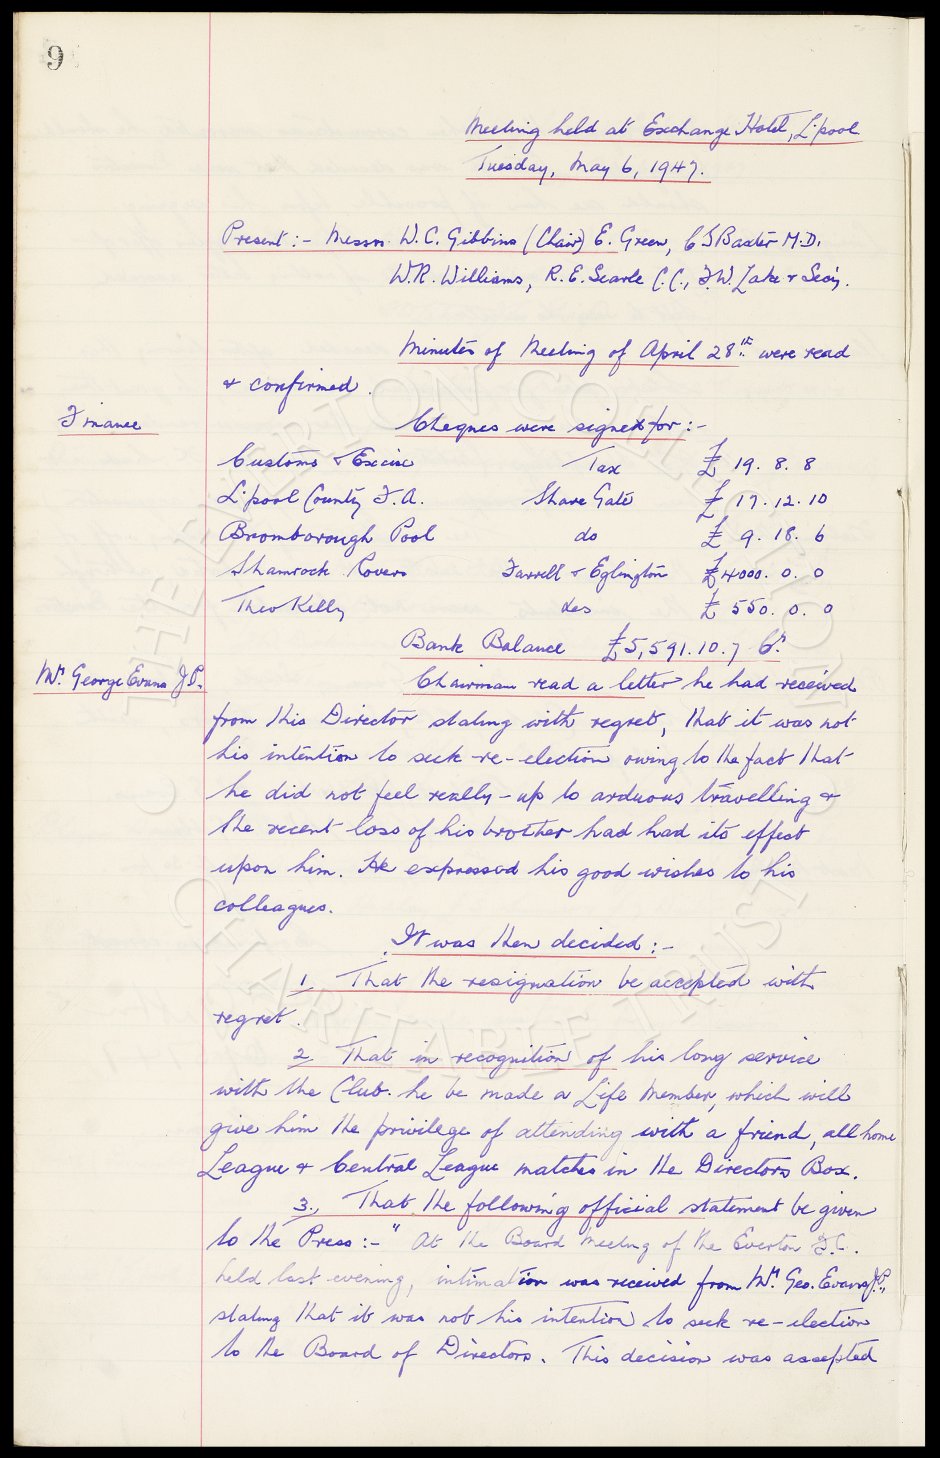 9
Meeting held at Exchange Hotel, L'pool
Tuesday, May 6, 1947.
Present :- Messrs. W.C. Gibbins (Chair) E. Green, C S Baxter M.D.
W.R. Williams, R.E. Searle C.C., F.W. Lake & Sec'y.
Minutes of Meeting of April 28th were read
& confirmed.
Finance
Cheques were signed for :-
Customs & Excise Tax £ 19. 8. 8
L'pool County F.A. Share Gate £ 17. 12. 10
Bromborough Pool do £ 9. 18. 6
Shamrock Rovers Farrell & Eglington £4000. 0. 0
Theo Kelly £ 550. 0. 0
Bank Balance £5,591. 10. 7 Cr.
Mr. George Evans J.P.
Chairman read a letter he had received
from this Director stating with regret, that it was not
his intention to seek re-election owing to the fact that
he did not feel really - up to arduous travelling &
the recent loss of his brother had had its effect
upon him. He expressed his good wishes to his
colleagues.
It was then decided :-
1. That the resignation be accepted with
regret.
2. That in recognition of his long service
with the Club. he be made a Life Member, which will
give him the privilege of attending with a friend, all home
League & Central League matches in the Directors Box.
3., That the following official statement be given
to the Press :- " At the Board Meeting of the Everton F.C.
held last evening, intimation was received from Mr. Geo. Evans J.P.,
stating that it was not his intention to seek re-election
to the Board of Directors. This decision was accepted
THE EVERTON COLLECTION CHARITABLE TRUST